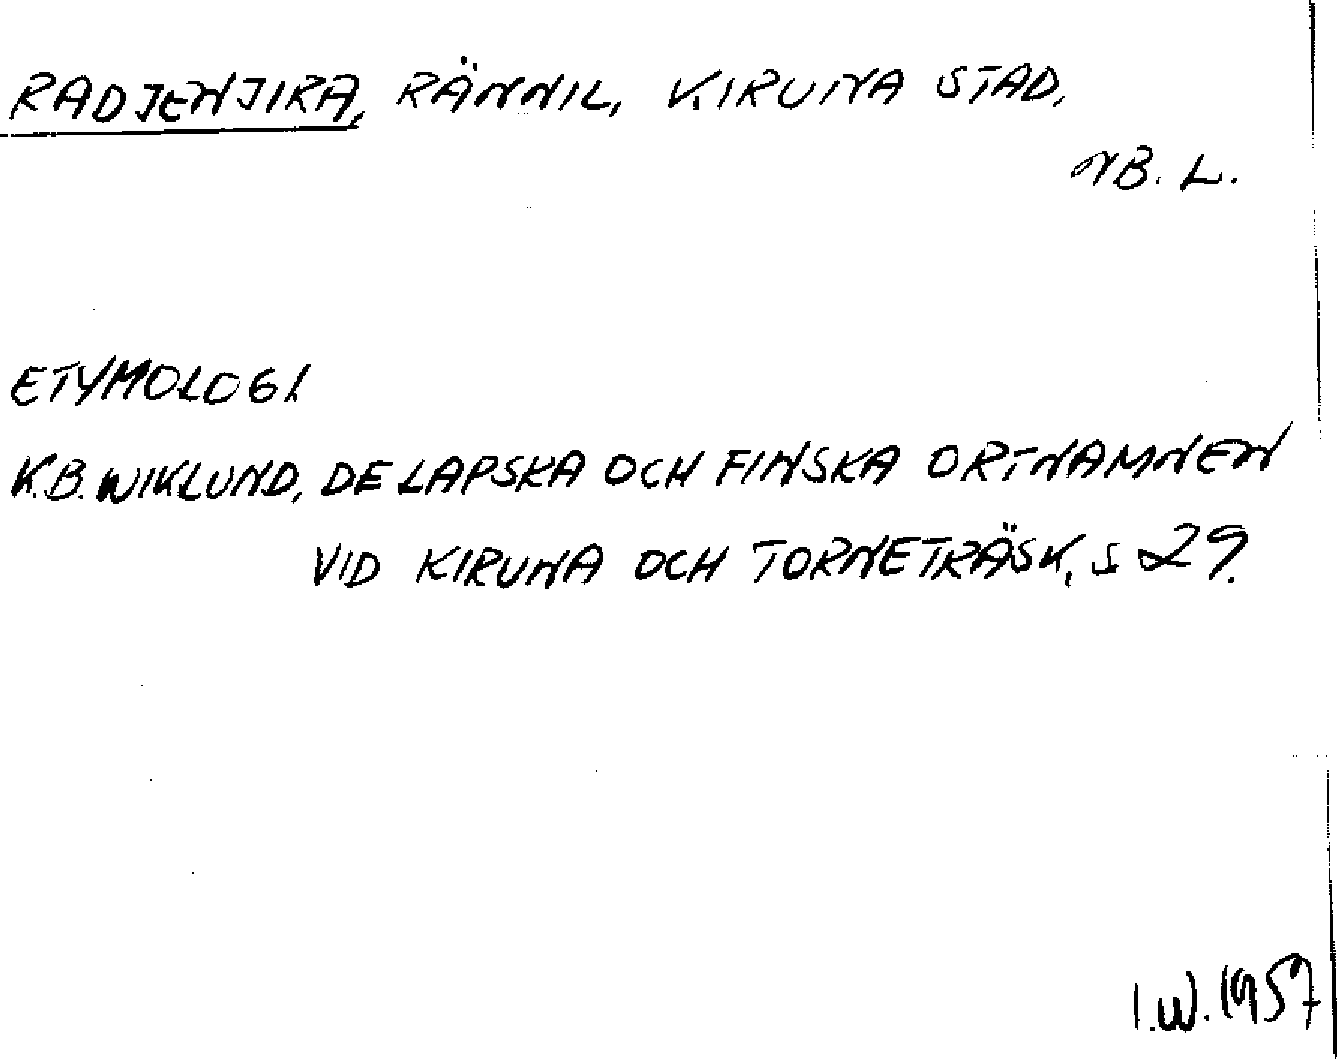 RADJENJIRA, RÄNNIL, KIRUNA STAD,
NB. L.
ETYMOLOGI
K.B. WIKLUND, DE LAPSKA OCH FINSKA ORTNAMNEN
VID KIRUNA OCH TORNETRÄSK, S 29.
I.W. 1957